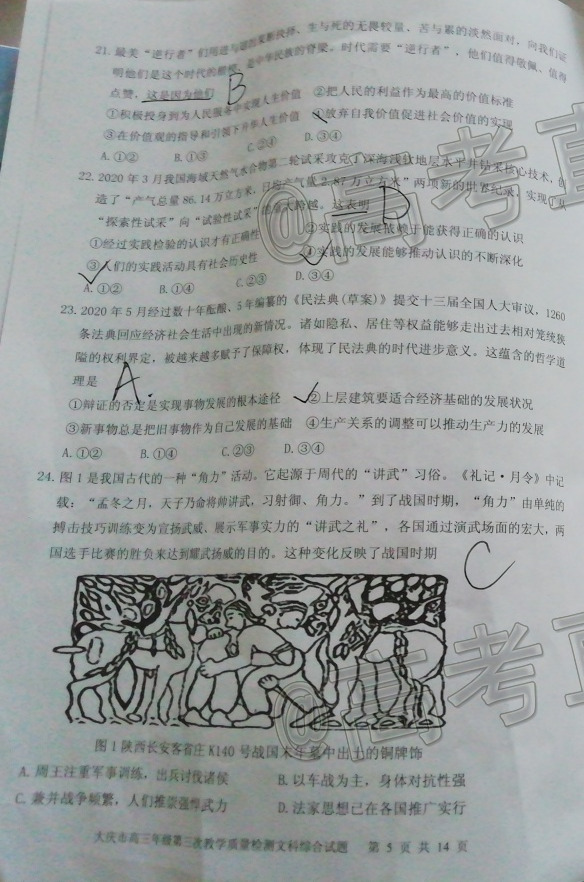 21. 最美“逆行者”们用进与退的果断抉择、生与死的无畏较量、苦与累的淡然面对，向我们证
明他们是这个时代的楷模，是中华民族的脊梁。时代需要“逆行者”，他们值得敬佩、值得
点赞，这是因为他们 B
①积极投身到为人民服务中实现人生价值 ②把人民的利益作为最高的价值标准
③在价值观的指导和引领下升华人生价值 ④放弃自我价值促进社会价值的实现
A. ①② B. ①③ C. ②④ D. ③④
22. 2020 年 3 月我国海域天然气水合物第二轮试采攻克了深海浅软地层水平井钻采核心技术，创
造了“产气总量 86.14 万立方米，日均产气量 2.87 万立方米”两项新的世界纪录，实现了从
“探索性试采”向“试验性试采”的重大跨越。这表明 D
①经过实践检验的认识才有正确性 ②实践的发展依赖于能获得正确的认识
③人们的实践活动具有社会历史性 ④实践的发展能够推动认识的不断深化
A. ①② B. ①④ C. ②③ D. ③④
23. 2020 年 5 月经过数十年酝酿、5 年编纂的《民法典(草案)》提交十三届全国人大审议，1260
条法典回应经济社会生活中出现的新情况。诸如隐私、居住等权益能够走出过去相对笼统狭
隘的权利界定，被越来越多赋予了保障权，体现了民法典的时代进步意义。这蕴含的哲学道
理是 A.
①辩证的否定是实现事物发展的根本途径 ②上层建筑要适合经济基础的发展状况
③新事物总是把旧事物作为自己发展的基础 ④生产关系的调整可以推动生产力的发展
A. ①② B. ①④ C. ②③ D. ③④
24. 图 1 是我国古代的一种“角力”活动。它起源于周代的“讲武”习俗。《礼记·月令》中记
载：“孟冬之月，天子乃命将帅讲武，习射御、角力。”到了战国时期，“角力”由单纯的
搏击技巧训练变为宣扬武威、展示军事实力的“讲武之礼”，各国通过演武场面的宏大，两
国选手比赛的胜负来达到耀武扬威的目的。这种变化反映了战国时期 C
图 1 陕西长安客省庄 K140 号战国末年墓中出土的铜牌饰
A. 周王注重军事训练，出兵讨伐诸侯 B. 以车战为主，身体对抗性强
C. 兼并战争频繁，人们推崇强悍武力 D. 法家思想已在各国推广实行
大庆市高三年级第三次教学质量检测文科综合试题 第 5 页 共 14 页
@高考直
@高考直